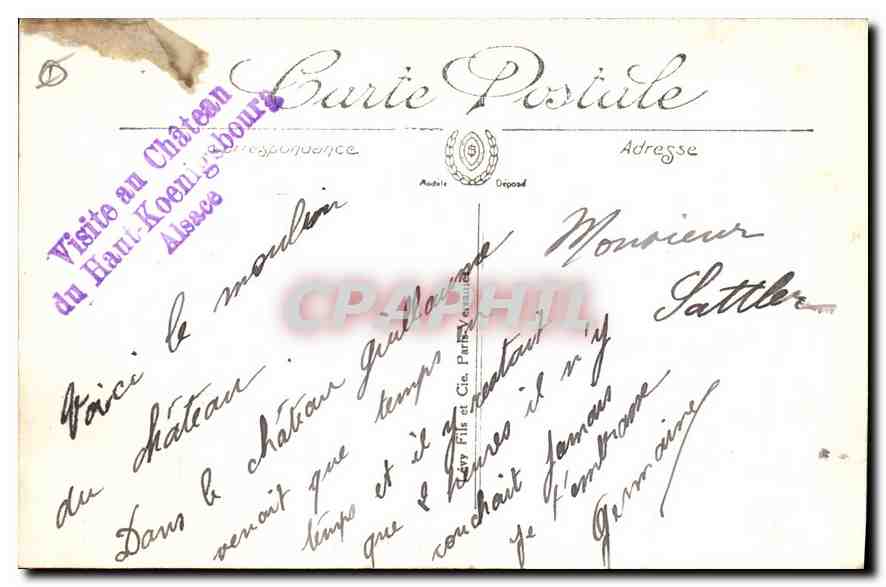 Carte Postale
Correspondance
Adresse
Modèle Déposé
Visite au Château
du Haut-Koenigsbourg
Alsace
Voici le moulin
du château.
Dans le château guillaume
venait que temps en
temps et il y restait
que 2 heures il n'y
couchait jamais
je t'embrasse
Germaine
Monsieur
Sattler
Lévy Fils et Cie, Paris-Versailles
CPAPHIL